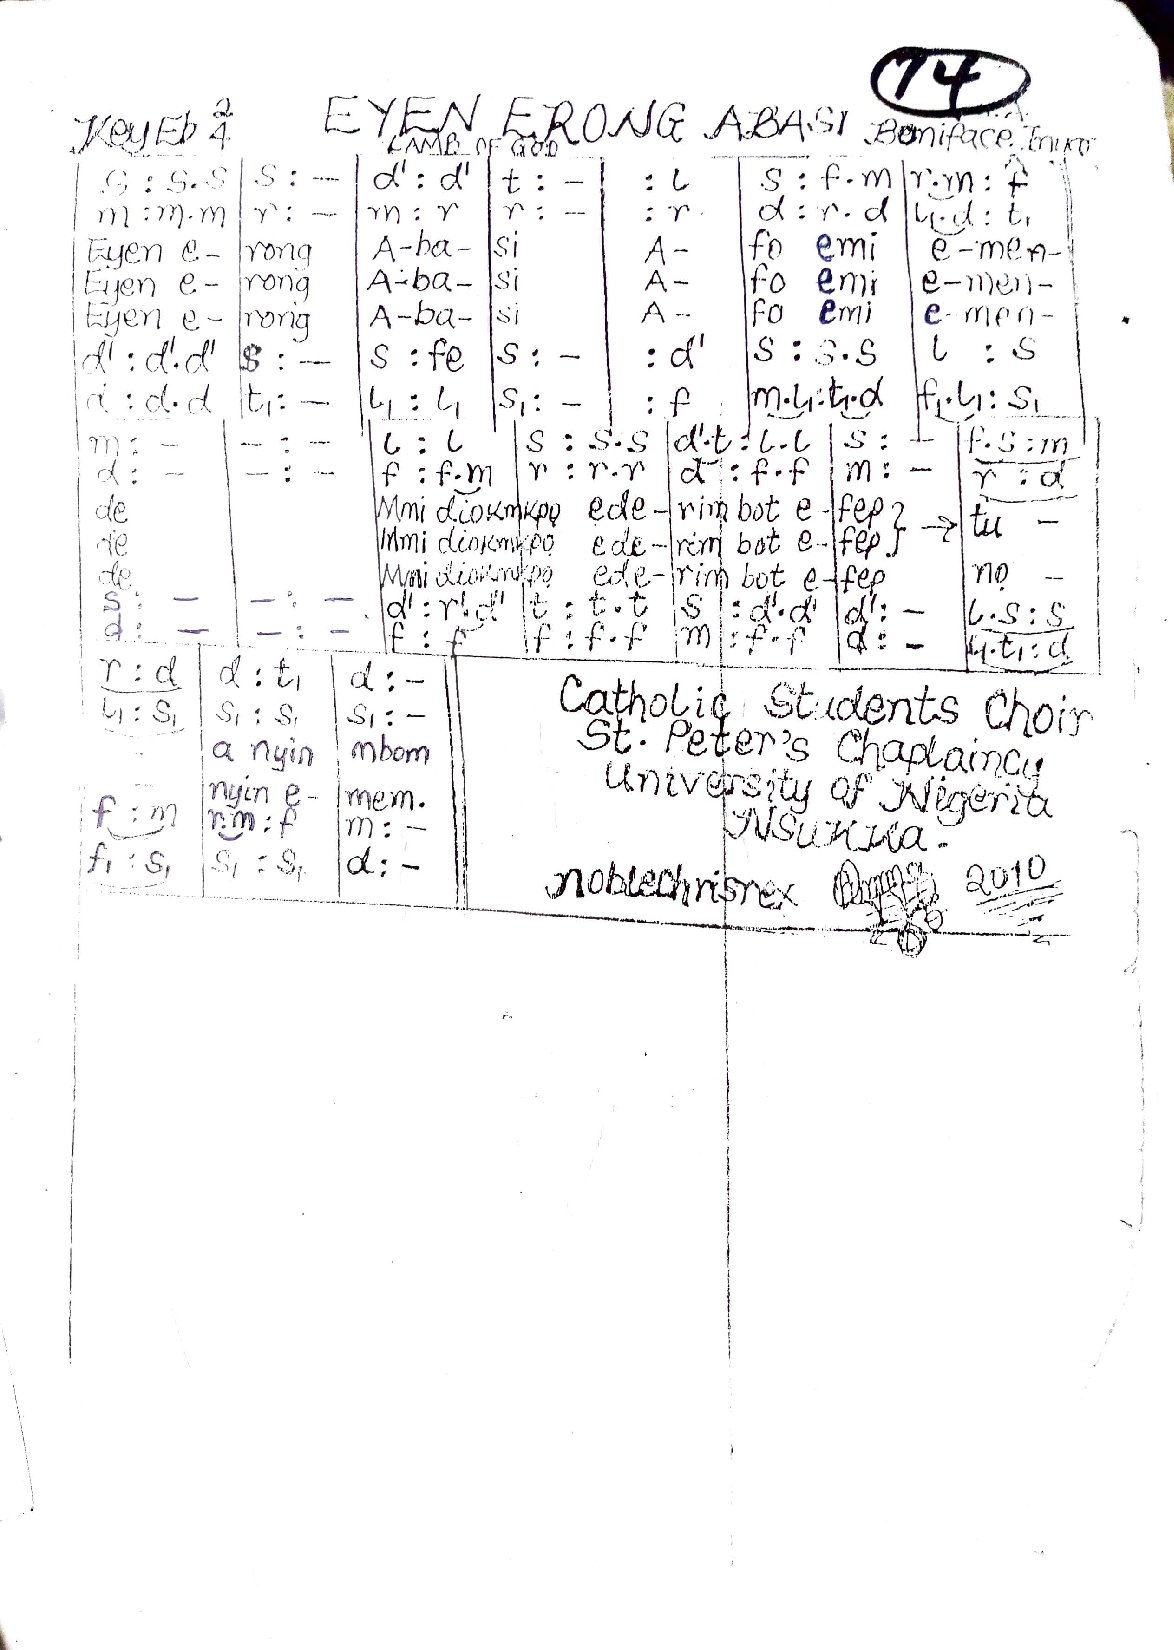 74
Key Eb 2/4 EYEN ERONG ABASI Boniface
LAMB OF GOD
s : s.s | s : — | d' : d' | t : — | : l | s : f.m | r.m : f
m : m.m | r : — | m : r | r : — | : r | d : r.d | l₁.d : t₁
Eyen e- | rong | A-ba- | si | A- | fo emi | e-men-
Eyen e- | rong | A-ba- | si | A- | fo emi | e-men-
Eyen e- | rong | A-ba- | si | A- | fo emi | e-men-
d' : d'.d' | s : — | s : fe | s : — | : d' | s : s.s | l : s
d : d.d | t₁ : — | l₁ : l₁ | s₁ : — | : f | m.l₁ : t₁.d | f₁.l₁ : s₁
m : — | — : — | l : l | s : s.s | d'.t : l.l | s : — | f.s : m
d : — | — : — | f : f.m | r : r.r | d : f.f | m : — | r : d
de | Mmi diokmkpọ ede- | rim bot e- | fep } → | tu —
de | Mmi diokmkpọ ede- | rim bot e- | fep }
de | Mmi diokmkpọ ede- | rim bot e- | fep | nọ —
s : — | — : — | d' : r'.d' | t : t.t | s : d'.d' | d' : — | l.s : s
d : — | — : — | f : f | f : f.f | m : f.f | d : — | l₁.t₁ : d
r : d | d : t₁ | d : —
l₁ : s₁ | s₁ : s₁ | s₁ : —
a nyin | mbom
nyin e- | mem.
f : m | r.m : f | m : —
f₁ : s₁ | s₁ : s₁ | d : —
Catholic Students Choir
St. Peter's Chaplaincy
University of Nigeria
NSUKKA.
noblechrisrex 2010